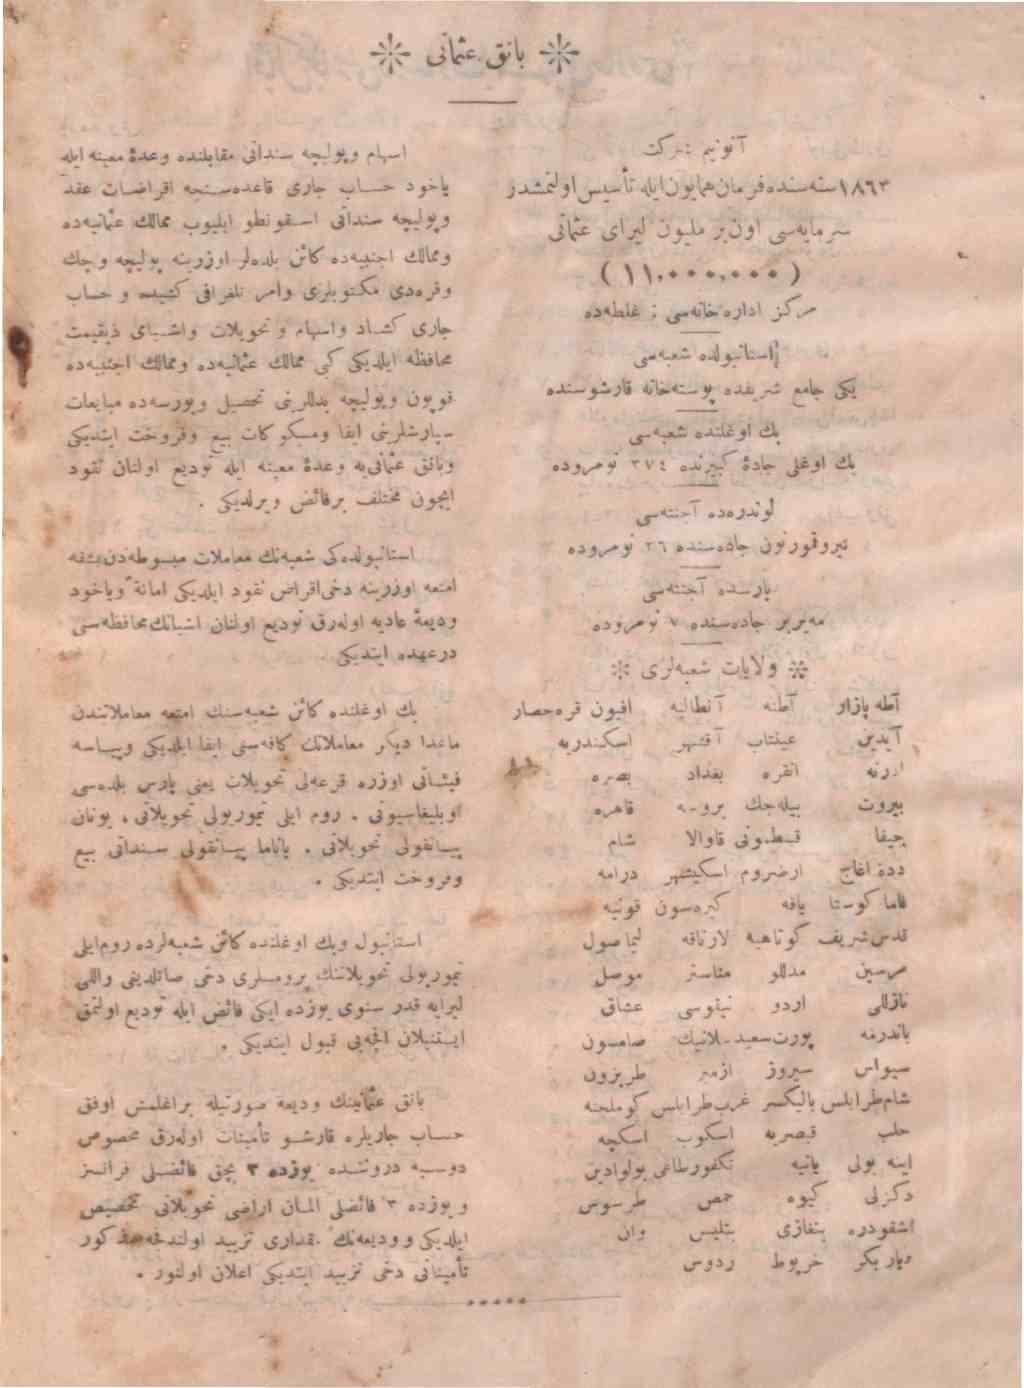 بانق عثمانی
آنونیم شركت
١٨٦٣ سنه‌سنده فرمان همایون ایله تأسیس اولنمشدر
سرمایه‌سی اون بر ملیون لیرای عثمانی
(١١,٠٠٠,٠٠٠)
مركز اداره‌خانه‌سی : غلطه‌ده
استانبولده شعبه‌سی
یكی جامع شریفده پوسته‌خانه قارشوسنده
بك اوغلنده شعبه‌سی
بك اوغلی جادهٔ كبیرنده ٣٧٤ نومروده
لوندره‌ده آجنته‌سی
جاده‌سنده ٢٦ نومروده
پارسده آجنته‌سی
مه‌یربر جاده‌سنده ٧ نومروده
ولایات شعبه‌لری
آطه پازار آطنه آنطالیه افیون قره‌حصار
آیدین عینتاب آقشهر اسكندریه
ادرنه انقره بغداد بصره
بیروت بیله‌جك بروسه قاهره
حیفا قسطمونی قاوالا شام
دده‌اغاج ارضروم اسكیشهر درامه
فاما كوستا یافه كیره‌سون قونیه
قدس شریف كوتاهیه لارناقه لیماصول
مرسین مدللو مناستر موصل
نازللی اردو نیقوسی عشاق
باندرمه پورت‌سعید سلانیك صامسون
سیواس سیروز ازمیر طربزون
شام‌طرابلس بالیكسر غرب‌طرابلس كوملجنه
حلب قیصریه اسكوب اسكچه
اینه‌بولی یانیه تكفورطاغی بولوادین
دكزلی كیوه حمص طرسوس
اشقودره بنغازی بتلیس وان
دیاربكر خرپوط ردوس
اسهام وپولیچه سنداتی مقابلنده وعدهٔ معینه ایله
یاخود حساب جاری قاعده‌سنجه اقراضات عقد
وپولیچه سنداتی اسقونطو ایلیوب ممالك عثمانیه‌ده
وممالك اجنبیه‌ده كائن بلده‌لر اوزرینه پولیچه وچك
وقره‌دی مكتوبلری وامر تلغرافی كشیده و حساب
جاری كشاد واسهام و تحویلات واشیای ذیقیمت
محافظه ایلدیكی كبی ممالك عثمانیه‌ده وممالك اجنبیه‌ده
قوپون وپولیچه بدللرینی تحصیل وبورسه‌ده مبایعات
سپارشلرینی ایفا ومسكوكات بیع وفروخت ایتدیكی
وبانق عثمانی‌یه وعدهٔ معینه ایله تودیع اولنان نقود
ایچون مختلف برفائض ویرلدیكی .
استانبولده‌كی شعبه‌نك معاملات مبسوطه‌دن بشقه
امتعه اوزرینه دخی اقراض نقود ایلدیكی امانةً ویاخود
ودیعهٔ عادیه اوله‌رق تودیع اولنان اشیانك محافظه‌سنی
درعهده ایتدیكی .
بك اوغلنده كائن شعبه‌سنك امتعه معاملاتندن
ماعدا دیكر معاملاتك كافه‌سنی ایفا ایلدیكی وپیاسه
فیئاتی اوزره قرعه‌لی تحویلات یعنی پارس بلده‌سی
اوبلیغاسیونی ، روم ایلی تیموریولی تحویلاتی ، یونان
پیانقولی تحویلاتی ، پاناما پیانقولی سنداتی بیع
وفروخت ایتدیكی .
استانبول وبك اوغلنده كائن شعبه‌لرده روم‌ایلی
تیموریولی تحویلاتنك پرومسلری دخی صاتلدیغی واللی
لیرایه قدر سنوی یوزده ایكی فائض ایله تودیع اولنمق
ایستنیلان اقچه‌یی قبول ایتدیكی .
بانق عثمانینك ودیعه صورتیله براغلمش اوفق
حساب جاریلره قارشو تأمینات اوله‌رق مخصوص
دوسیه دروننده یوزده ٣ بچق فائضلی فرانسز
و یوزده ٣ فائضلی المان اراضی تحویلاتی تخصیص
ایلدیكی وودیعه‌نك مقداری تزیید اولندقجه مذكور
تأمیناتی دخی تزیید ایتدیكی اعلان اولنور .